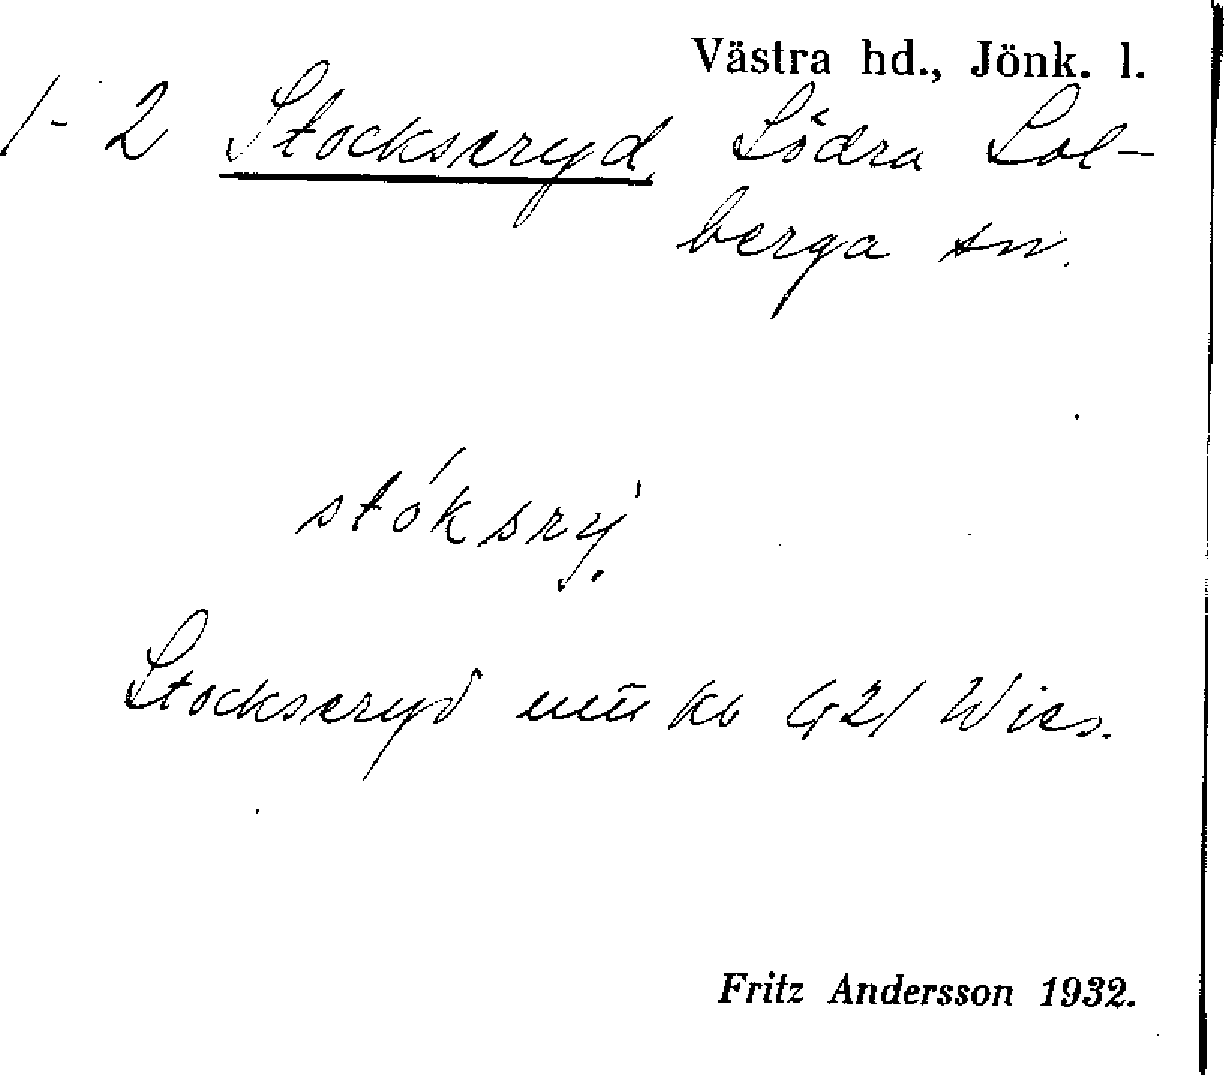 Västra hd., Jönk. l.
1-2 Stockseryd Södra Sol-
berga sn.
stóksrý.
Stockseryd kb 421 Wies.
Fritz Andersson 1932.